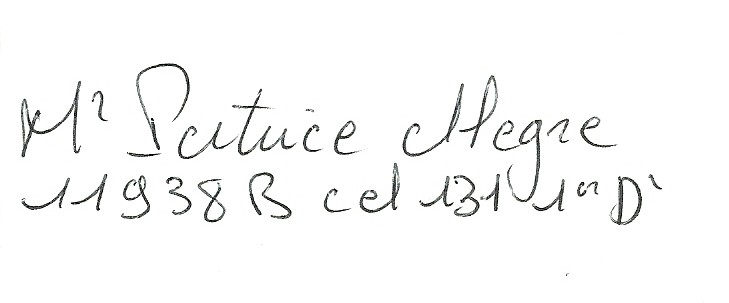 Mr Patrice Alegre
11938 B cel 131 1er D